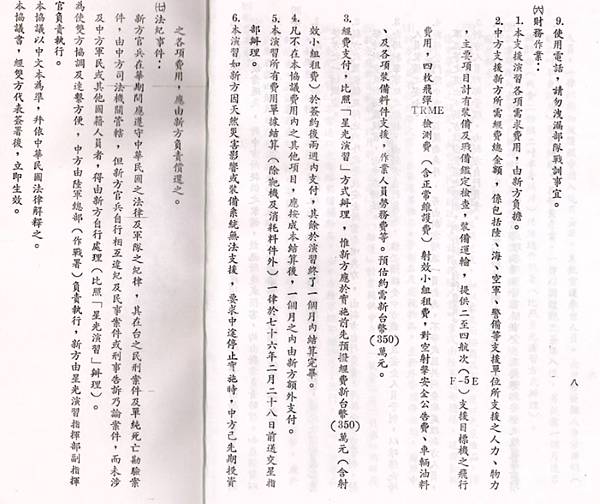 八
9. 使用電話，請勿洩漏部隊戰訓事宜。
㈥財務作業：
1. 本支援演習各項需求費用，由新方負擔。
2. 中方支援新方所需經費總金額，係包括陸、海、空軍、警備等支援單位所支援之人力、物力
，主要項目計有裝備及戰備鑑定檢查，裝備運輸，提供二至四航次（F-5E）支援目標機之飛行
費用，四枚飛彈TRME檢測費（含正常維護費）射效小組租費，對空射擊安全公告費、車輛油料
、及各項裝備料件支援，作業人員勞務費等。預估約需新台幣(350)萬元。
3. 經費支付，比照「星光演習」方式辦理，惟新方應於實施前先預撥經費新台幣(350)萬元（含射
效小組租費）於簽約後兩週內支付，其餘於演習終了一個月內結算完畢。
4. 凡不在本協議費用內之其他項目，應按成本結算後，一個月之內由新方額外支付。
5. 本演習所有費用單據結算（除靶機及消耗料件外）一律於七十六年二月二十八日前送交星指
部辦理。
6. 本演習如新方因天然災害影響或裝備系統無法支援，要求中途停止實施時，中方已先期投資
之各項費用，應由新方負責償還之。
㈦法紀事件：
新方官兵在華期間應遵守中華民國之法律及軍隊之紀律，其在台之民刑案件及單純死亡勘驗案
件，由中方司法機關管轄，但新方官兵自行相互違紀及民事案件或刑事告訴乃論案件，而未涉
及中方軍民或其他國籍人員者，得由新方自行處理（比照「星光演習」辦理）。
為使雙方協調及連繫方便，中方由陸軍總部（作戰署）負責執行，新方由星光演習指揮部副指揮
官負責執行。
本協議以中文本為準，并依中華民國法律解釋之。
本協議書，經雙方代表簽署後，立即生效。